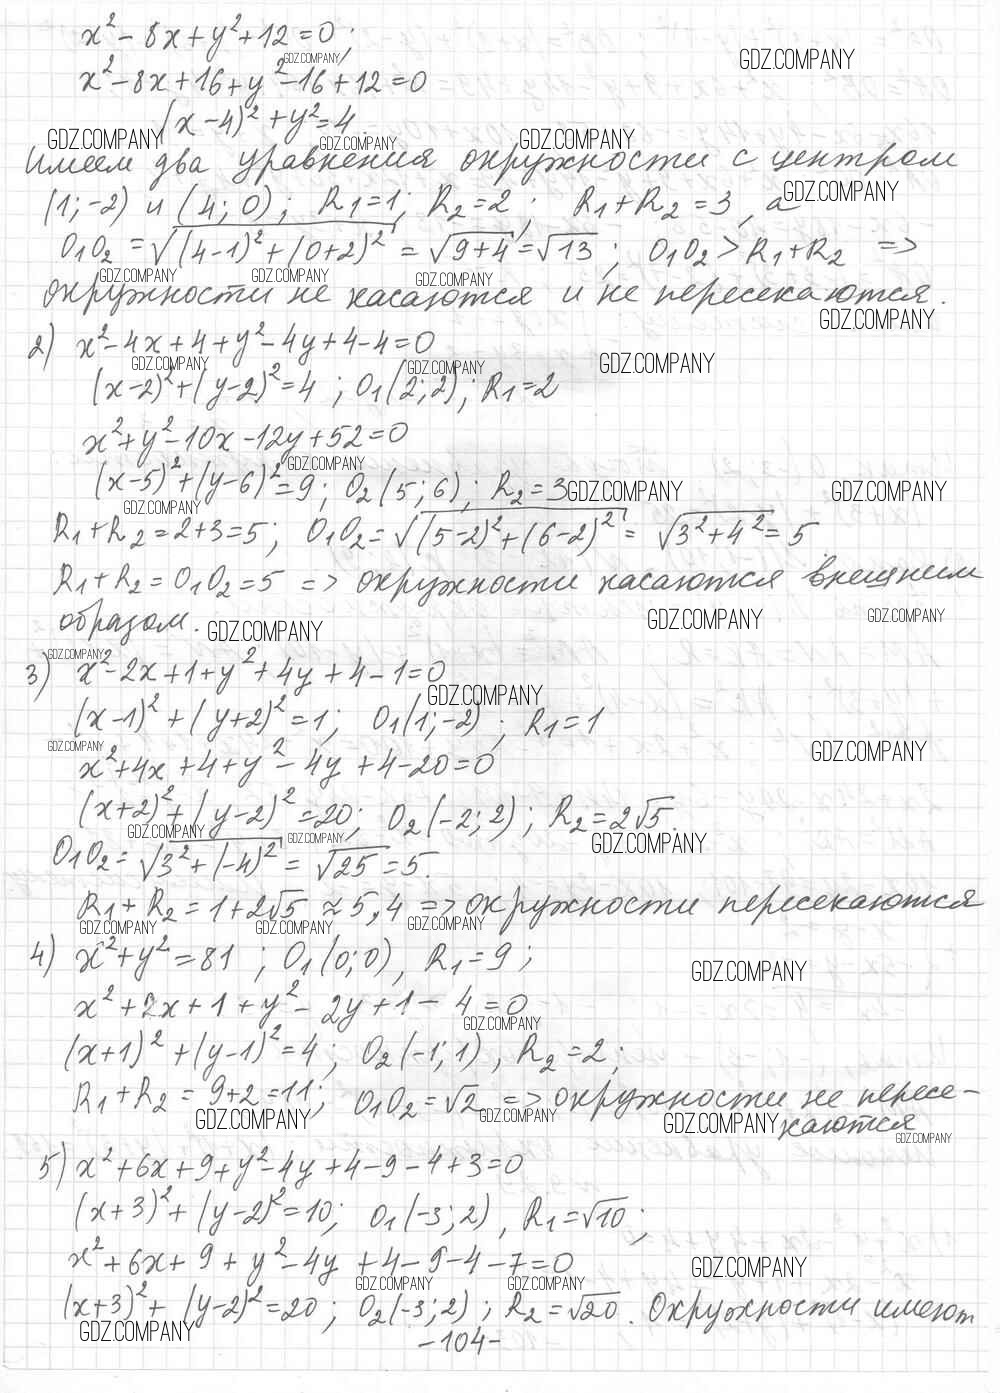 x² - 8x + y² + 12 = 0;
x² - 8x + 16 + y² - 16 + 12 = 0
(x - 4)² + y² = 4.
Имеем два уравнения окружности с центром
(1; -2) и (4; 0); R₁ = 1; R₂ = 2; R₁ + R₂ = 3, а
O₁O₂ = √((4-1)² + (0+2)²) = √(9+4) = √13; O₁O₂ > R₁ + R₂ =>
окружности не касаются и не пересекаются.
2) x² - 4x + 4 + y² - 4y + 4 - 4 = 0
(x-2)² + (y-2)² = 4; O₁(2; 2); R₁ = 2
x² + y² - 10x - 12y + 52 = 0
(x-5)² + (y-6)² = 9; O₂(5; 6); R₂ = 3
R₁ + R₂ = 2 + 3 = 5; O₁O₂ = √((5-2)² + (6-2)²) = √(3² + 4²) = 5
R₁ + R₂ = O₁O₂ = 5 => окружности касаются внешним
образом.
3) x² - 2x + 1 + y² + 4y + 4 - 1 = 0
(x-1)² + (y+2)² = 1; O₁(1; -2); R₁ = 1
x² + 4x + 4 + y² - 4y + 4 - 20 = 0
(x+2)² + (y-2)² = 20; O₂(-2; 2); R₂ = 2√5.
O₁O₂ = √(3² + (-4)²) = √25 = 5.
R₁ + R₂ = 1 + 2√5 ≈ 5,4 => окружности пересекаются
4) x² + y² = 81; O₁(0; 0), R₁ = 9;
x² + 2x + 1 + y² - 2y + 1 - 4 = 0
(x+1)² + (y-1)² = 4; O₂(-1; 1), R₂ = 2;
R₁ + R₂ = 9 + 2 = 11; O₁O₂ = √2 => окружности не пересе-
каются
5) x² + 6x + 9 + y² - 4y + 4 - 9 - 4 + 3 = 0
(x+3)² + (y-2)² = 10; O₁(-3; 2), R₁ = √10;
x² + 6x + 9 + y² - 4y + 4 - 9 - 4 - 7 = 0
(x+3)² + (y-2)² = 20; O₂(-3; 2); R₂ = √20. Окружности имеют
-104-
GDZ.COMPANY